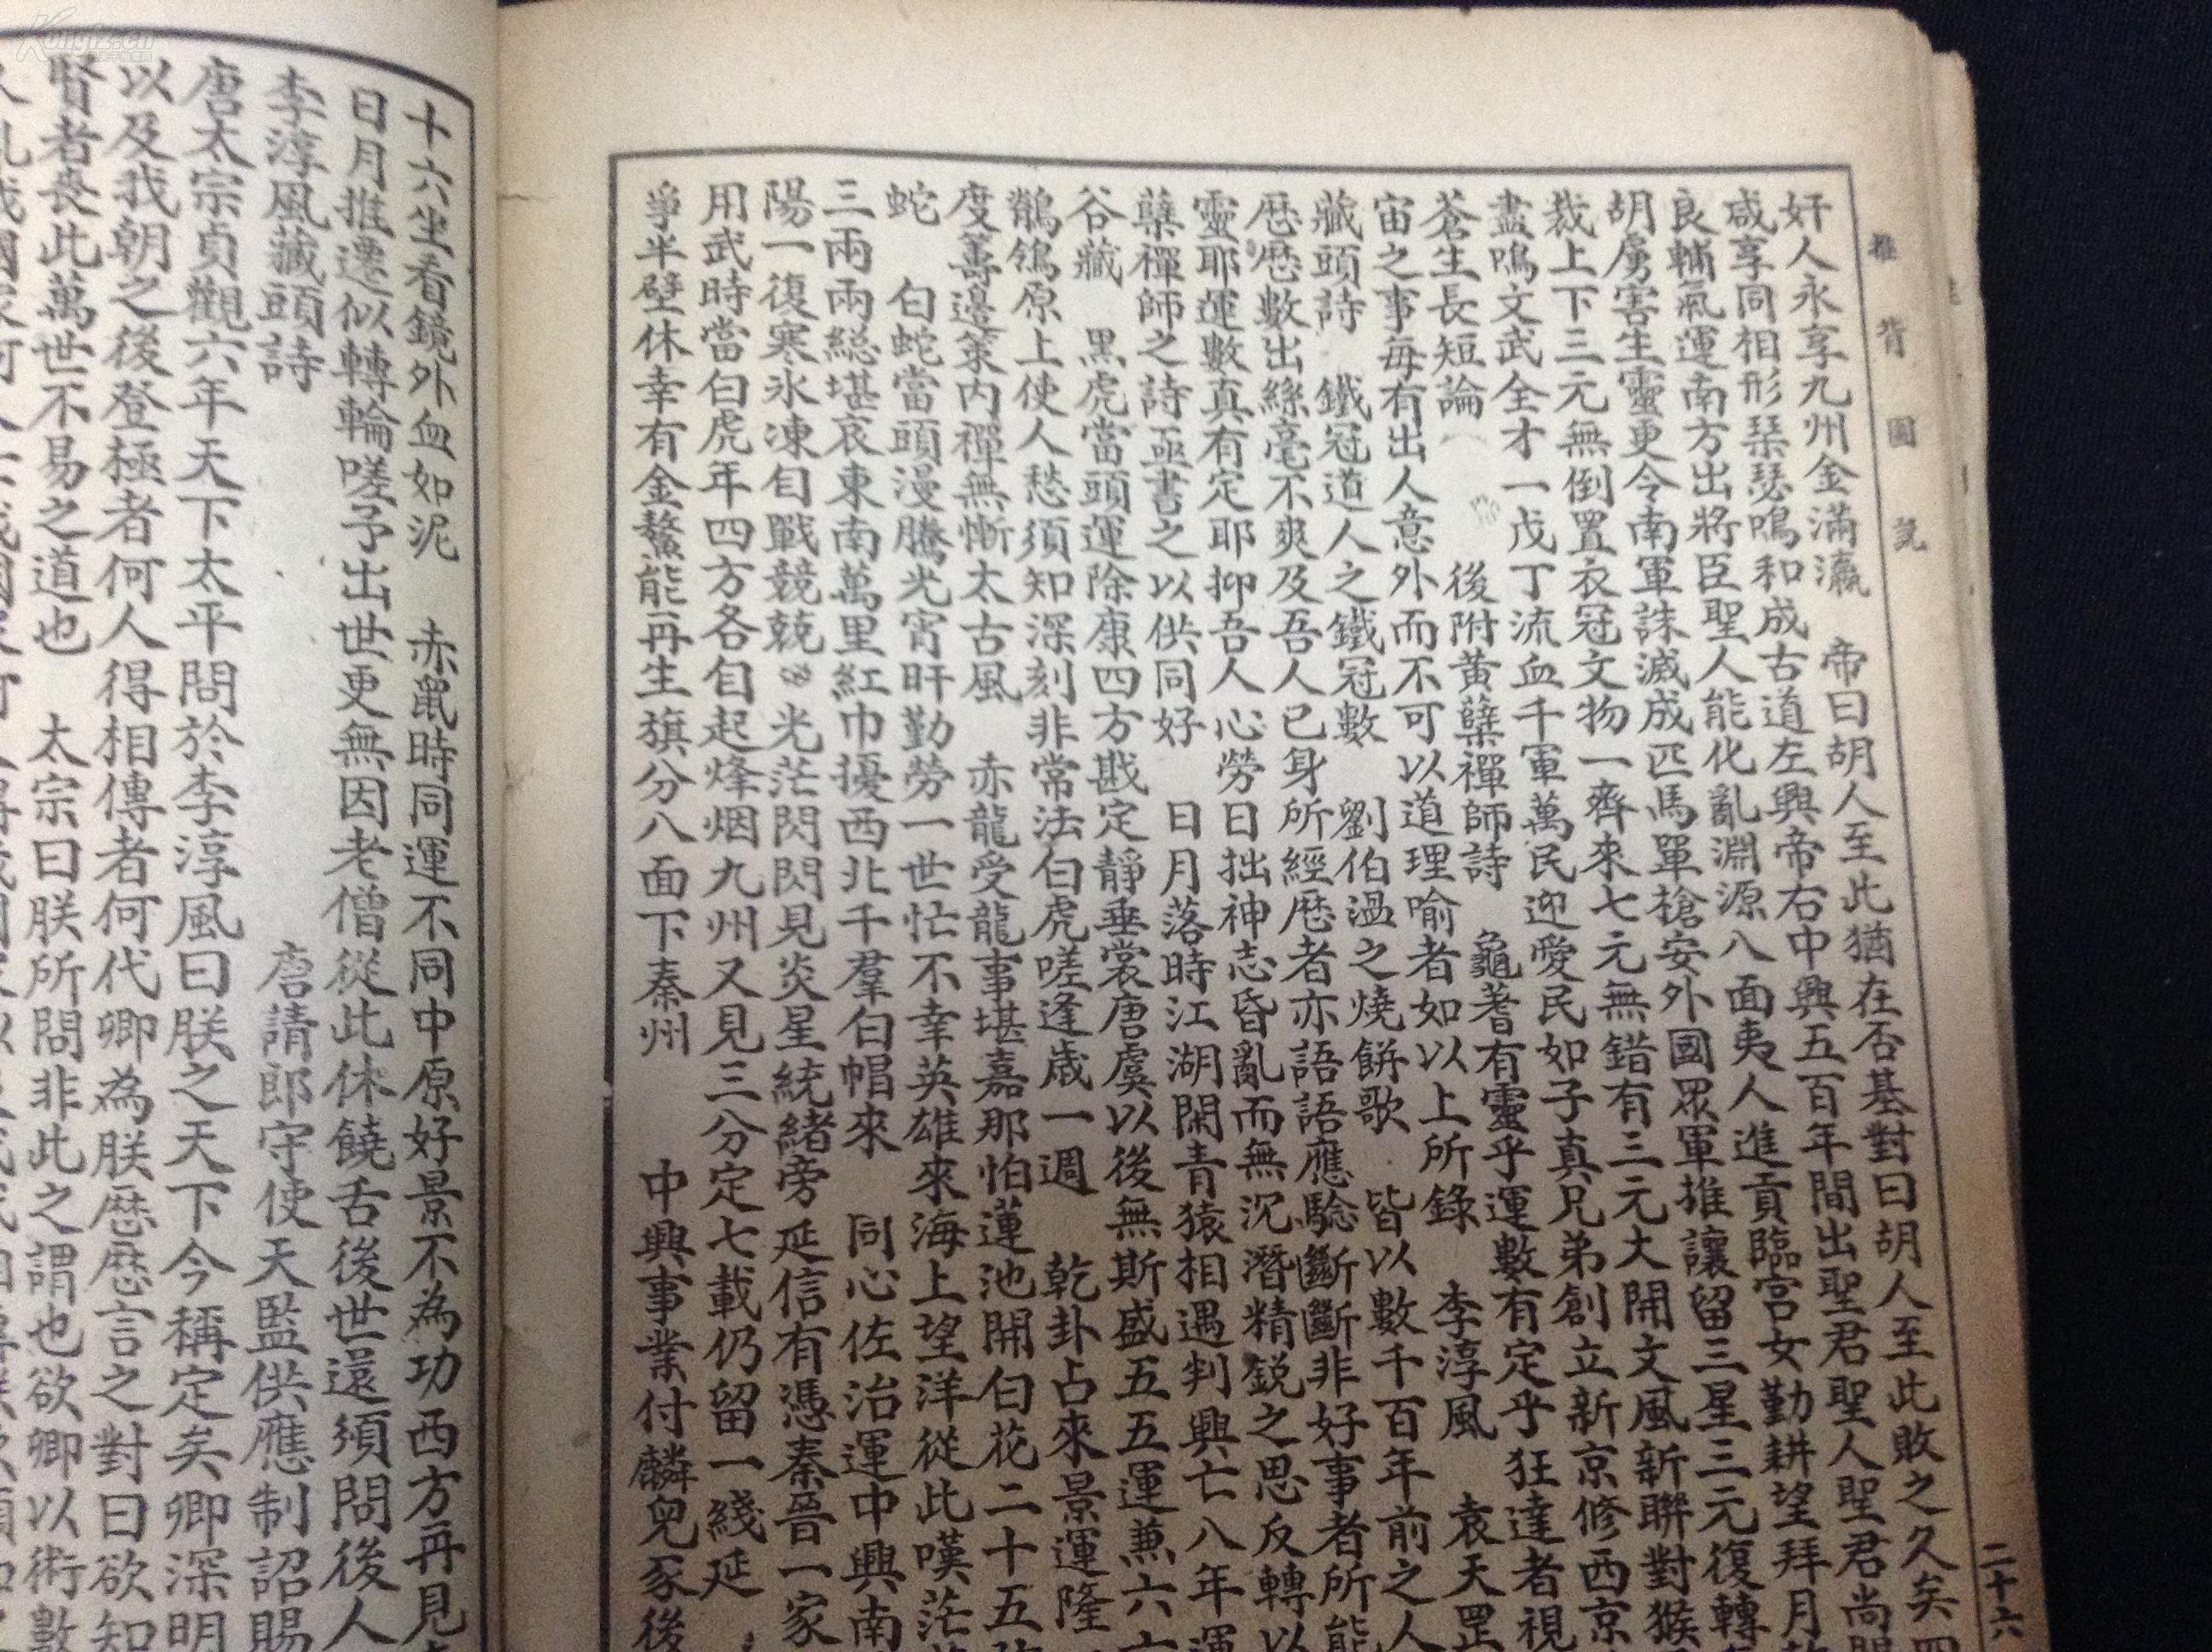 推背圖說
二十六
奸人永享九州金滿瀛　帝曰胡人至此猶在否基對曰胡人至此敗之久矣四
咸享同相形琹瑟鳴和成古道左興帝右中興五百年間出聖君聖人聖君尚
良輔氣運南方出將臣聖人能化亂淵源八面夷人進貢臨宮女勤耕望拜月
胡虜害生靈更令南軍誅滅成匹馬單槍安外國眾軍推讓留三星三元復轉
裁上下三元無倒置衣冠文物一齊來七元無錯有三元大開文風新聯對猴
盡鳴文武全才一戊丁流血千軍萬民迎愛民如子真兄弟創立新京修西京
蒼生長短論　後附黃蘗禪師詩　龜蓍有靈乎運數有定乎狂達者視
宙之事每有出人意外而不可以道理喻者如以上所錄　李淳風　袁天罡
藏頭詩　鐵冠道人之鐵冠數　劉伯溫之燒餅歌　皆以數千百年前之人
歷歷數出絲毫不爽及吾人已身所經歷者亦語語應驗斷斷非好事者所能
靈耶運數真有定耶抑吾人心勞日拙神志昏亂而無沉潛精銳之思反轉以
蘗禪師之詩亟書之以供同好　日月落時江湖閉青猿相遇判興亡八年運
谷藏　黑虎當頭運除康四方戡定靜垂裳唐虞以後無斯盛五五運兼六六
鶺鴒原上使人愁須知深刻非常法白虎嗟逢歲一週　乾卦占來景運隆
度籌邊策內禪無慚太古風　赤龍受龍事堪嘉那怕蓮池開白花二十五
蛇　白蛇當頭漫騰光宵旰勤勞一世忙不幸英雄來海上望洋從此嘆茫
三兩兩總堪哀東南萬里紅巾擾西北千羣白帽來　同心佐治運中興南
陽一復寒冰凍自戰競競　光茫閃閃見炎星統緒旁延信有憑秦晉一家
用武時當白虎年四方各自起烽烟九州又見三分定七載仍留一綫延
爭半壁休幸有金鰲能再生旗分八面下秦州　中興事業付麟兒豕後
十六坐看鏡外血如泥　赤鼠時同運不同中原好景不為功西方再見
日月推遷似轉輪嗟予出世更無因老僧從此休饒舌後世還須問後人
李淳風藏頭詩　唐請郎守使天監供應制詔賜
唐太宗貞觀六年天下太平問於李淳風曰朕之天下今稱定矣卿深明
以及我朝之後登極者何人得相傳者何代卿為朕歷歷言之對曰欲知
賢者喪此萬世不易之道也　太宗曰朕所問非此之謂也欲卿以術數